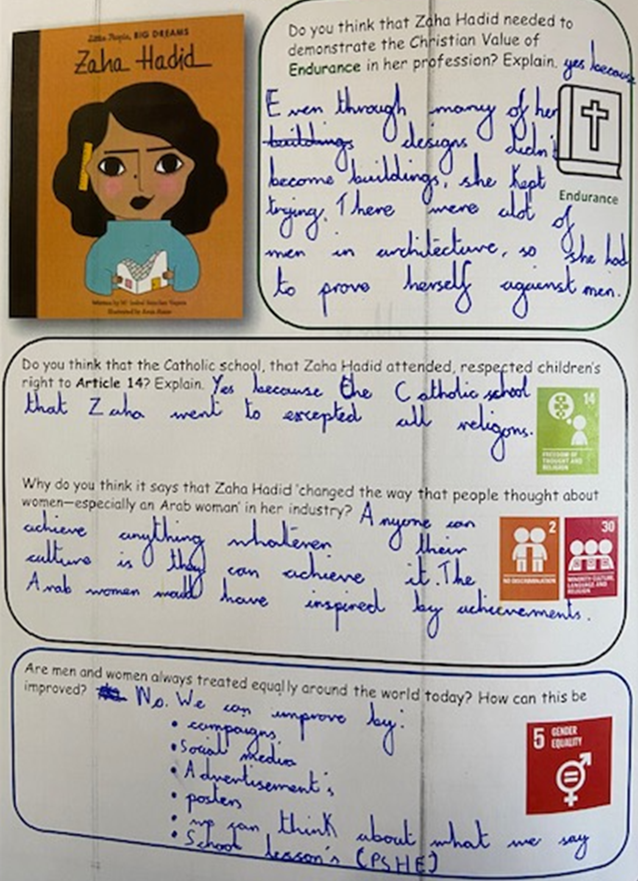 Little People, BIG DREAMS
Zaha Hadid
Written by M. Isabel Sánchez Vegara
Illustrated by Asun Amar
Do you think that Zaha Hadid needed to
demonstrate the Christian Value of
Endurance in her profession? Explain. yes because
Even through many of her
buildings designs didn't
become buildings, she kept
trying. There were alot of
men in architecture, so she had
to prove herself against men.
Endurance
Do you think that the Catholic school, that Zaha Hadid attended, respected children's
right to Article 14? Explain. Yes because the Catholic school
that Zaha went to excepted all religons.
14
FREEDOM OF
THOUGHT AND
RELIGION
Why do you think it says that Zaha Hadid 'changed the way that people thought about
women—especially an Arab woman' in her industry? Anyone can
achieve anything whatever their
culture is they can achieve it. The
Arab women would have inspired by achievements.
2
NO DISCRIMINATION
30
MINORITY CULTURE,
LANGUAGE AND
RELIGION
Are men and women always treated equally around the world today? How can this be
improved? No. We can improve by:
• campaigns
• Social media
• Advertisement's
• posters
• we can think about what we say
• School lesson's (PSHE)
5 GENDER
EQUALITY